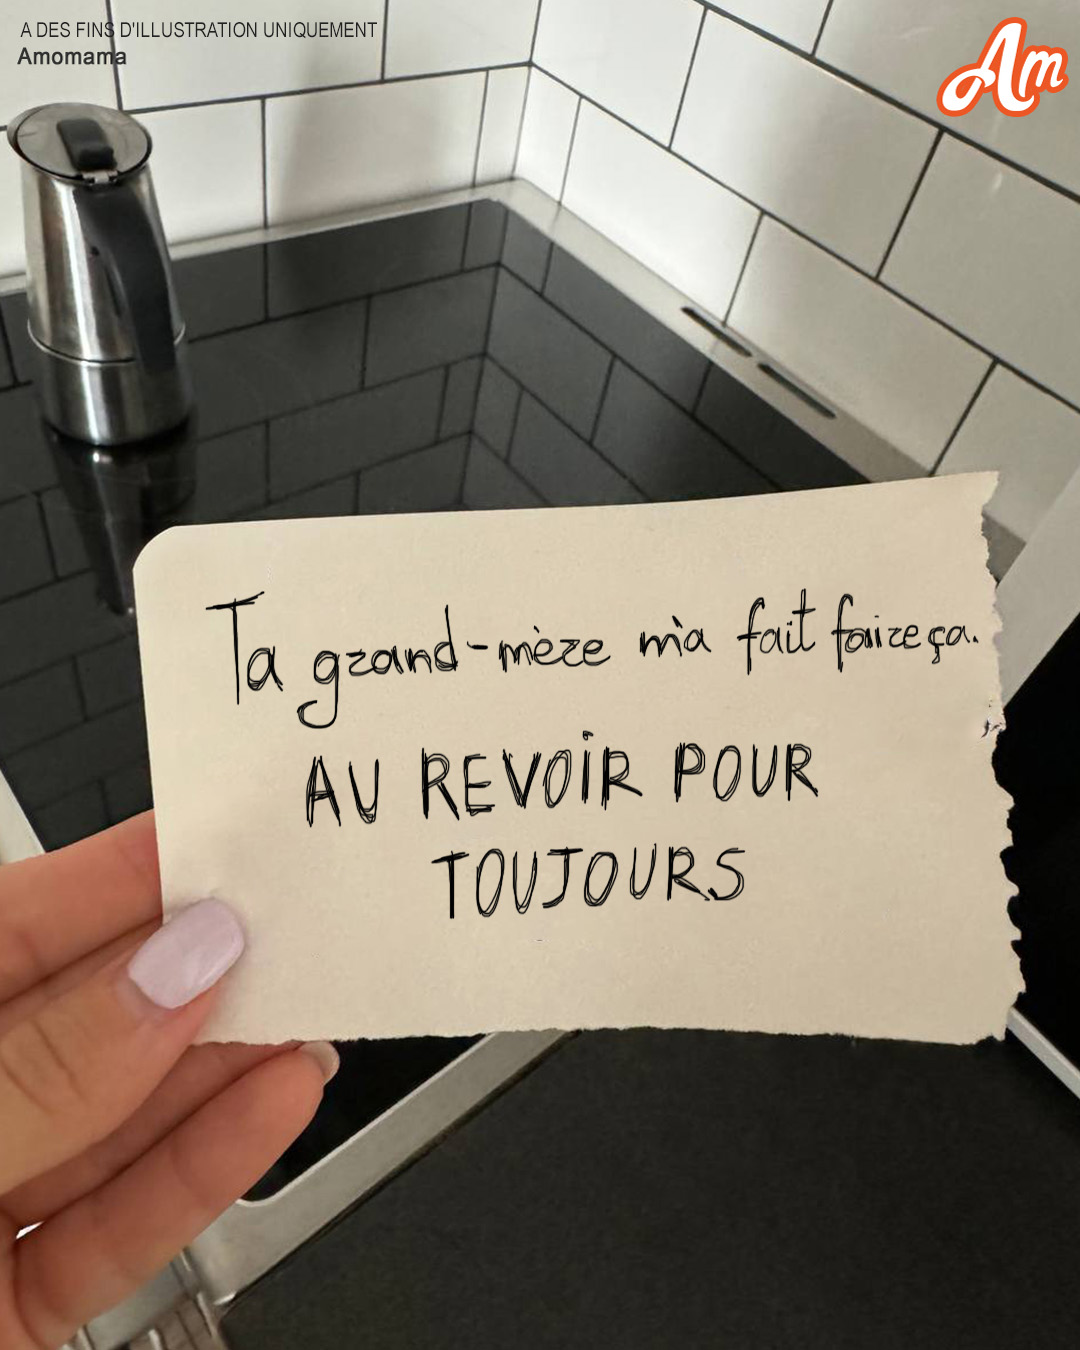 A DES FINS D'ILLUSTRATION UNIQUEMENT
Amomama
Am
Ta grand-mère m'a fait faire ça.
AU REVOIR POUR
TOUJOURS